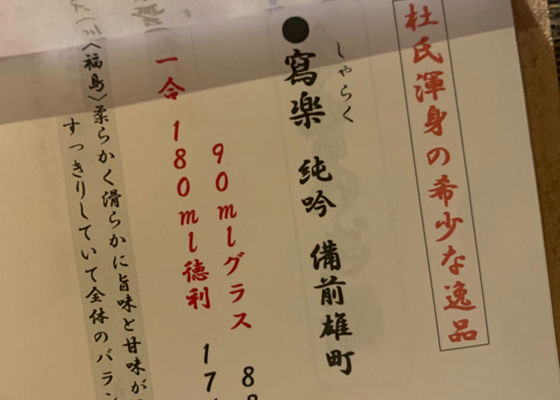 杜氏渾身の希少な逸品
しゃらく
●寫楽 純吟 備前雄町
90mlグラス 88
一合180ml徳利 17
〉福島〉柔らかく滑らかに旨味と甘味が
すっきりしていて全体のバラン